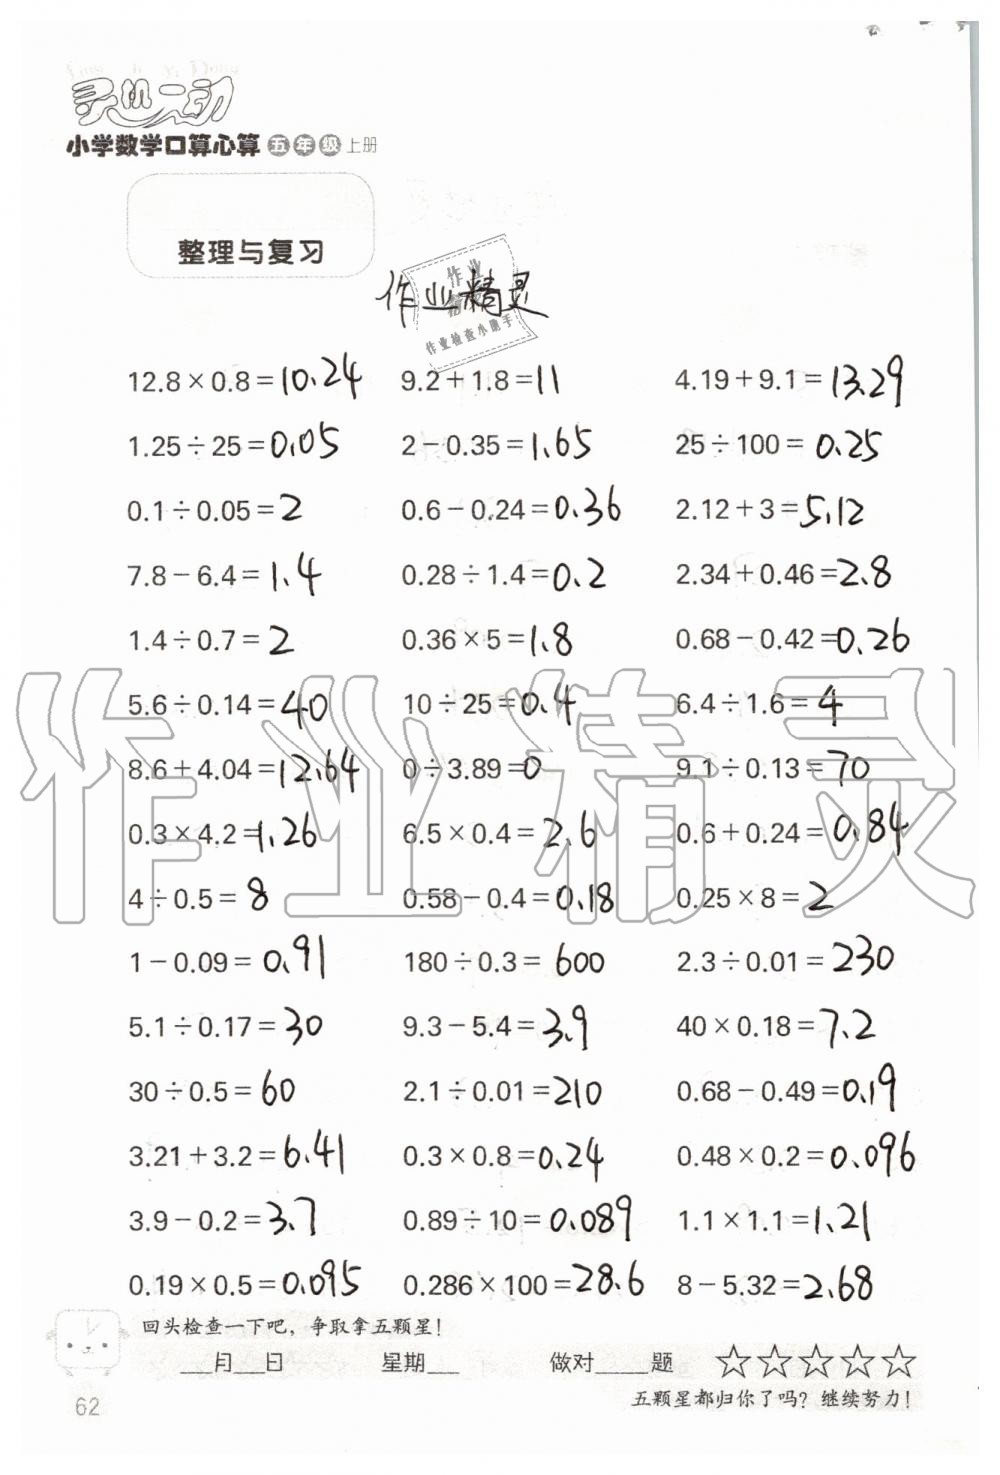 灵机一动
小学数学口算心算 五年级 上册
整理与复习
作业精灵
作业
作业检查小助手
12.8×0.8=10.24 9.2+1.8=11 4.19+9.1=13.29
1.25÷25=0.05 2-0.35=1.65 25÷100=0.25
0.1÷0.05=2 0.6-0.24=0.36 2.12+3=5.12
7.8-6.4=1.4 0.28÷1.4=0.2 2.34+0.46=2.8
1.4÷0.7=2 0.36×5=1.8 0.68-0.42=0.26
5.6÷0.14=40 10÷25=0.4 6.4÷1.6=4
8.6+4.04=12.64 0÷3.89=0 9.1÷0.13=70
0.3×4.2=1.26 6.5×0.4=2.6 0.6+0.24=0.84
4÷0.5=8 0.58-0.4=0.18 0.25×8=2
1-0.09=0.91 180÷0.3=600 2.3÷0.01=230
5.1÷0.17=30 9.3-5.4=3.9 40×0.18=7.2
30÷0.5=60 2.1÷0.01=210 0.68-0.49=0.19
3.21+3.2=6.41 0.3×0.8=0.24 0.48×0.2=0.096
3.9-0.2=3.7 0.89÷10=0.089 1.1×1.1=1.21
0.19×0.5=0.095 0.286×100=28.6 8-5.32=2.68
作业精灵
回头检查一下吧，争取拿五颗星！
___月___日 星期___ 做对_____题 ☆☆☆☆☆
五颗星都归你了吗？继续努力！
62